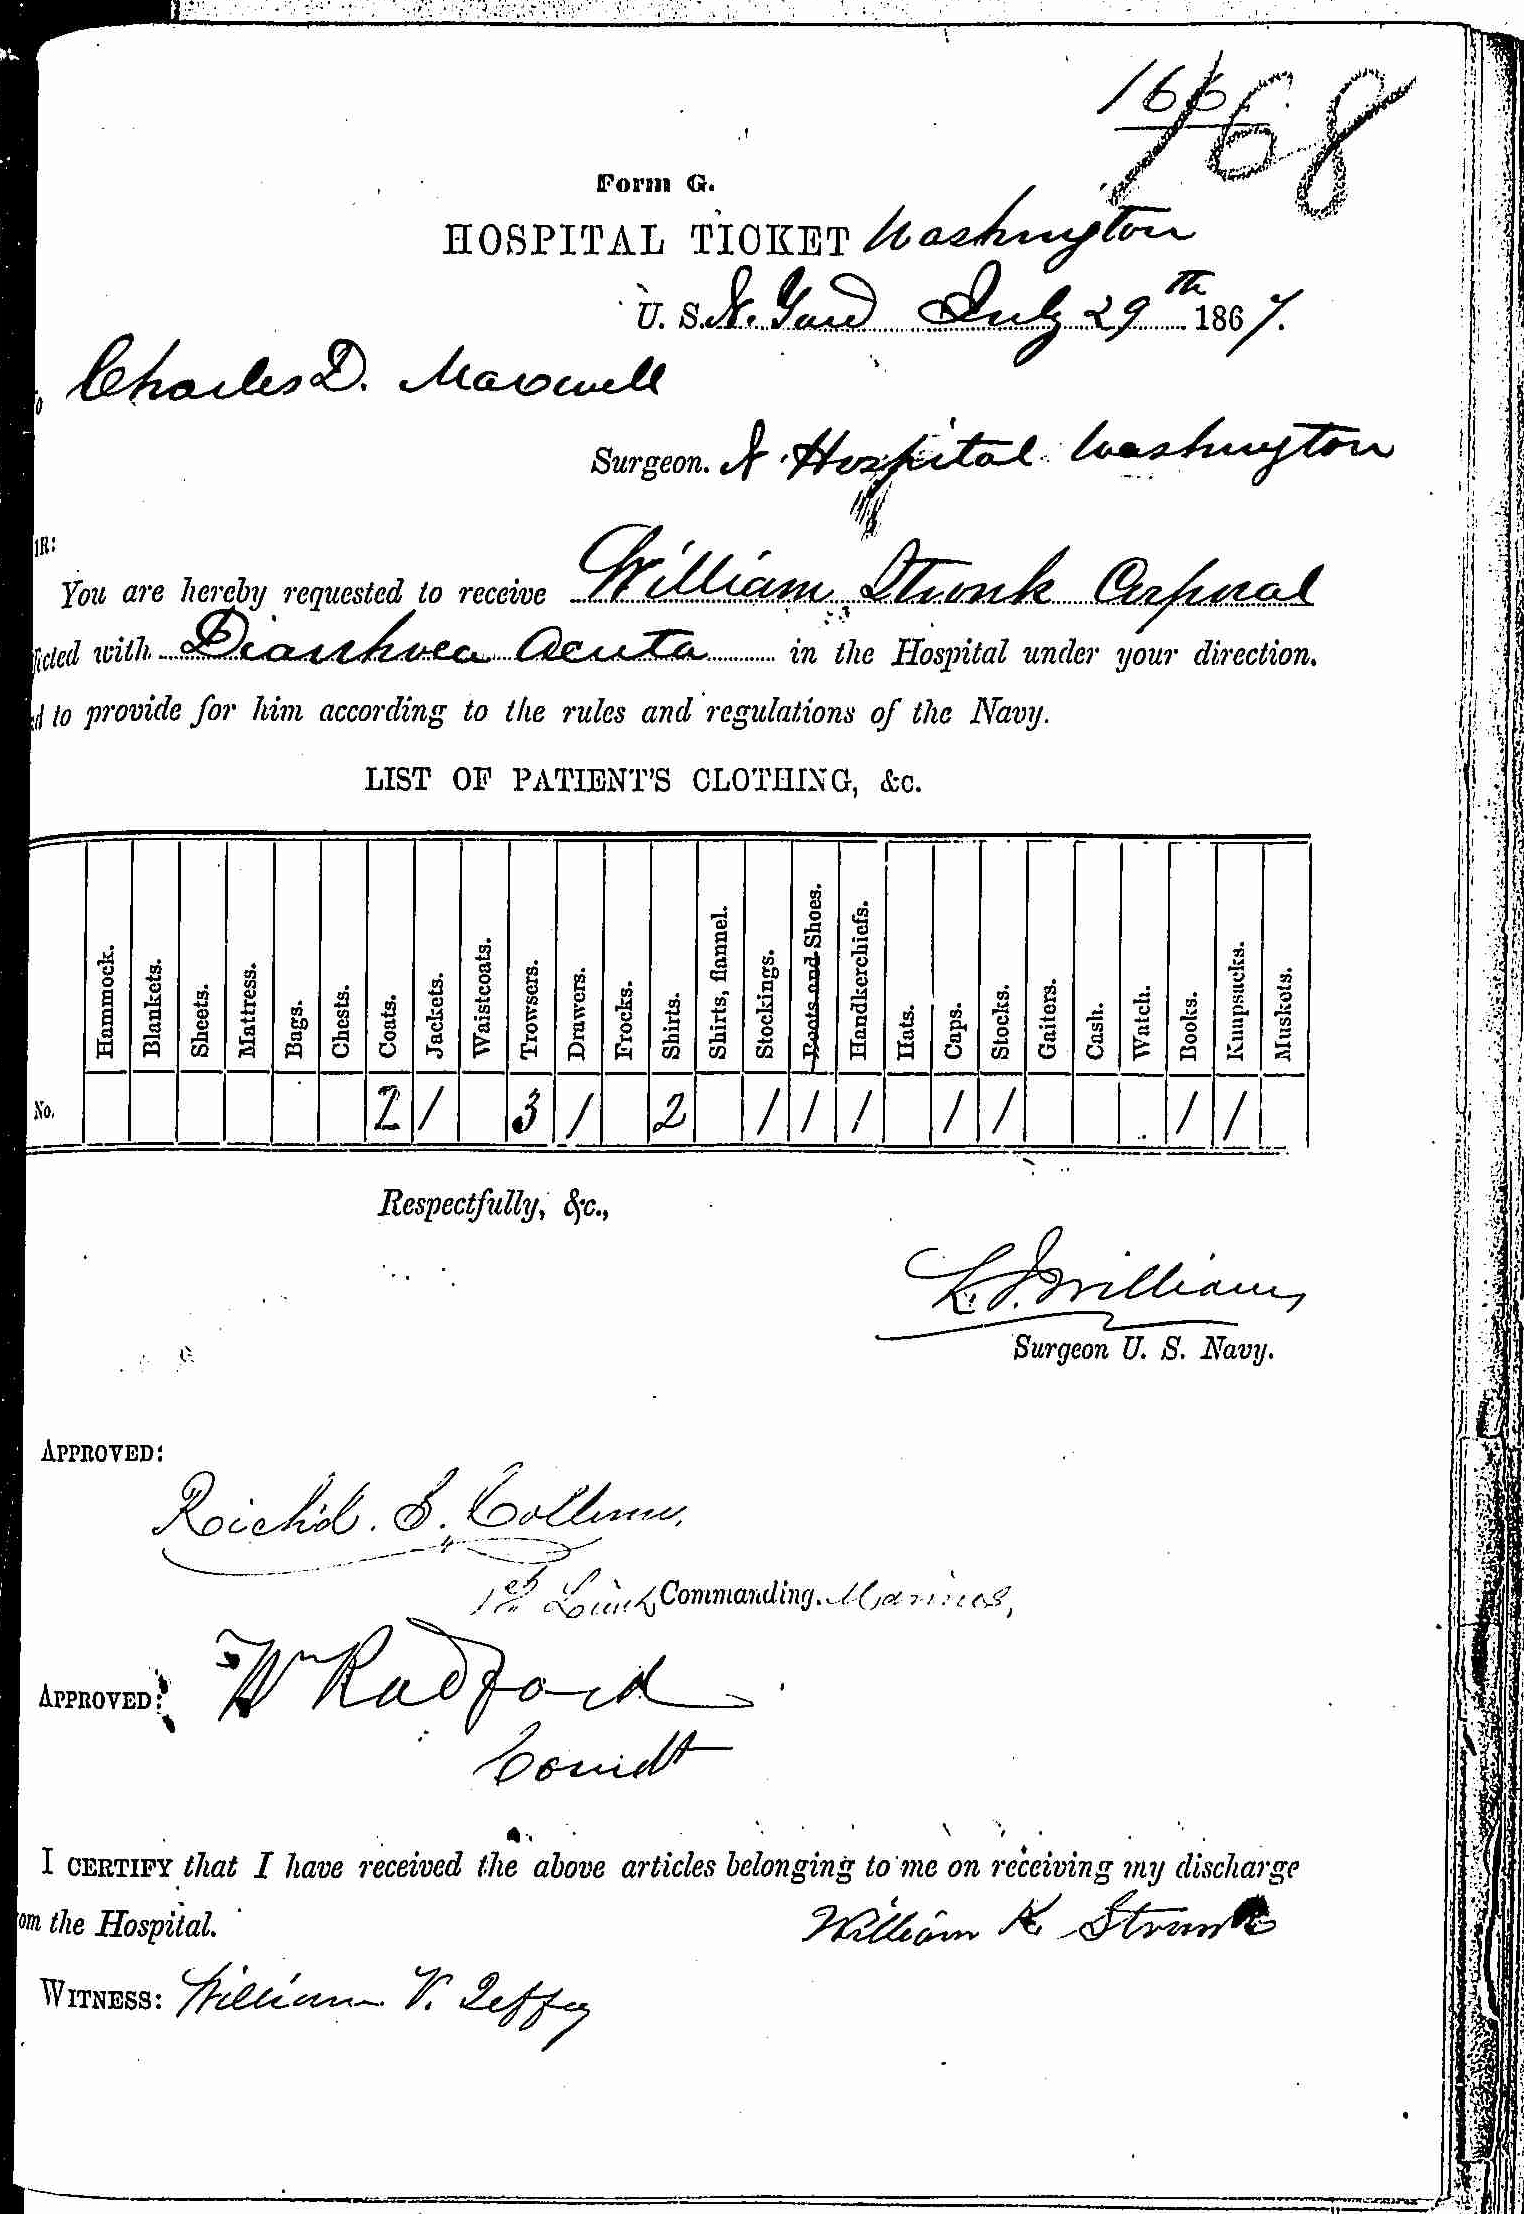 166
168
Form G.
HOSPITAL TICKET Washington
U. S. N. Yard July 29th 1867.
Charles D. Maxwell
Surgeon. N. Hospital Washington
IR:
You are hereby requested to receive William Strunk Corporal
icted with Diarrhoea Acuta in the Hospital under your direction.
d to provide for him according to the rules and regulations of the Navy.
LIST OF PATIENT'S CLOTHING, &c.
Hammock. Blankets. Sheets. Mattress. Bags. Chests. Coats. Jackets. Waistcoats. Trowsers. Drawers. Frocks. Shirts. Shirts, flannel. Stockings. Boots and Shoes. Handkerchiefs. Hats. Caps. Stocks. Gaiters. Cash. Watch. Books. Knapsacks. Muskets.
No. 2 1 3 1 2 1 1 1 1 1 1 1
Respectfully, &c.,
L. J. Williams
Surgeon U. S. Navy.
APPROVED:
Richd. S. Collum,
1st Lieut Commanding. Marines,
APPROVED: Wm Radford
Comdt
I CERTIFY that I have received the above articles belonging to me on receiving my discharge
om the Hospital. William K Strunk
WITNESS: William V.